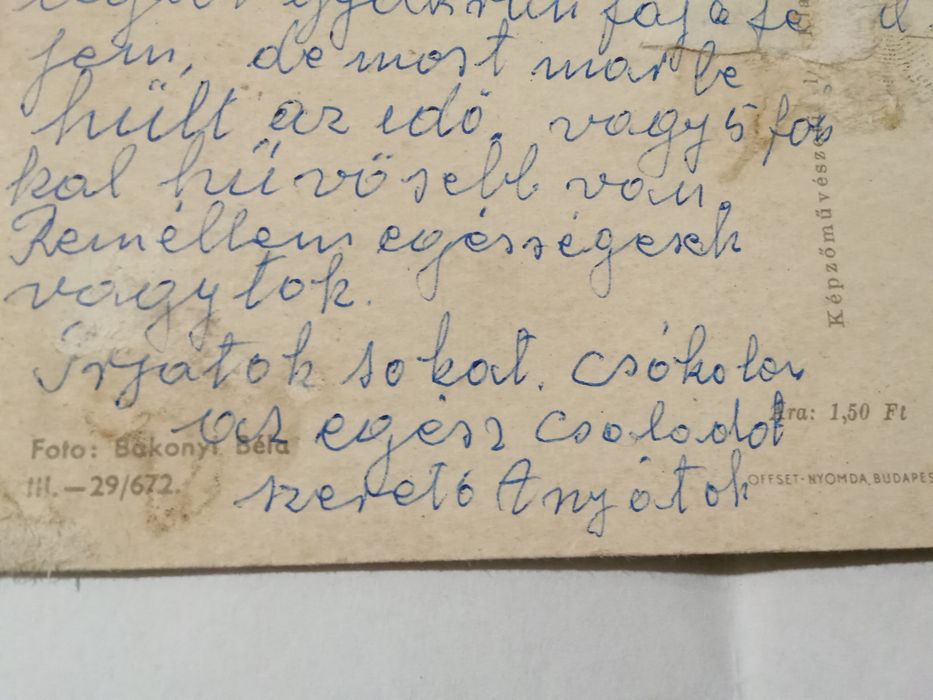 gyakran fáj a fe
jem, de most már be
hült az idő, vagy 5 fok
kal hüvösebb van.
Reméllem egésségesek
vagytok.
Írjatok sokat. Csókolom
az egész családot
szerető Anyátok
Foto: Bakonyi Béla
III.—29/672.
Képzőművésze
Ára: 1,50 Ft
OFFSET-NYOMDA, BUDAPES